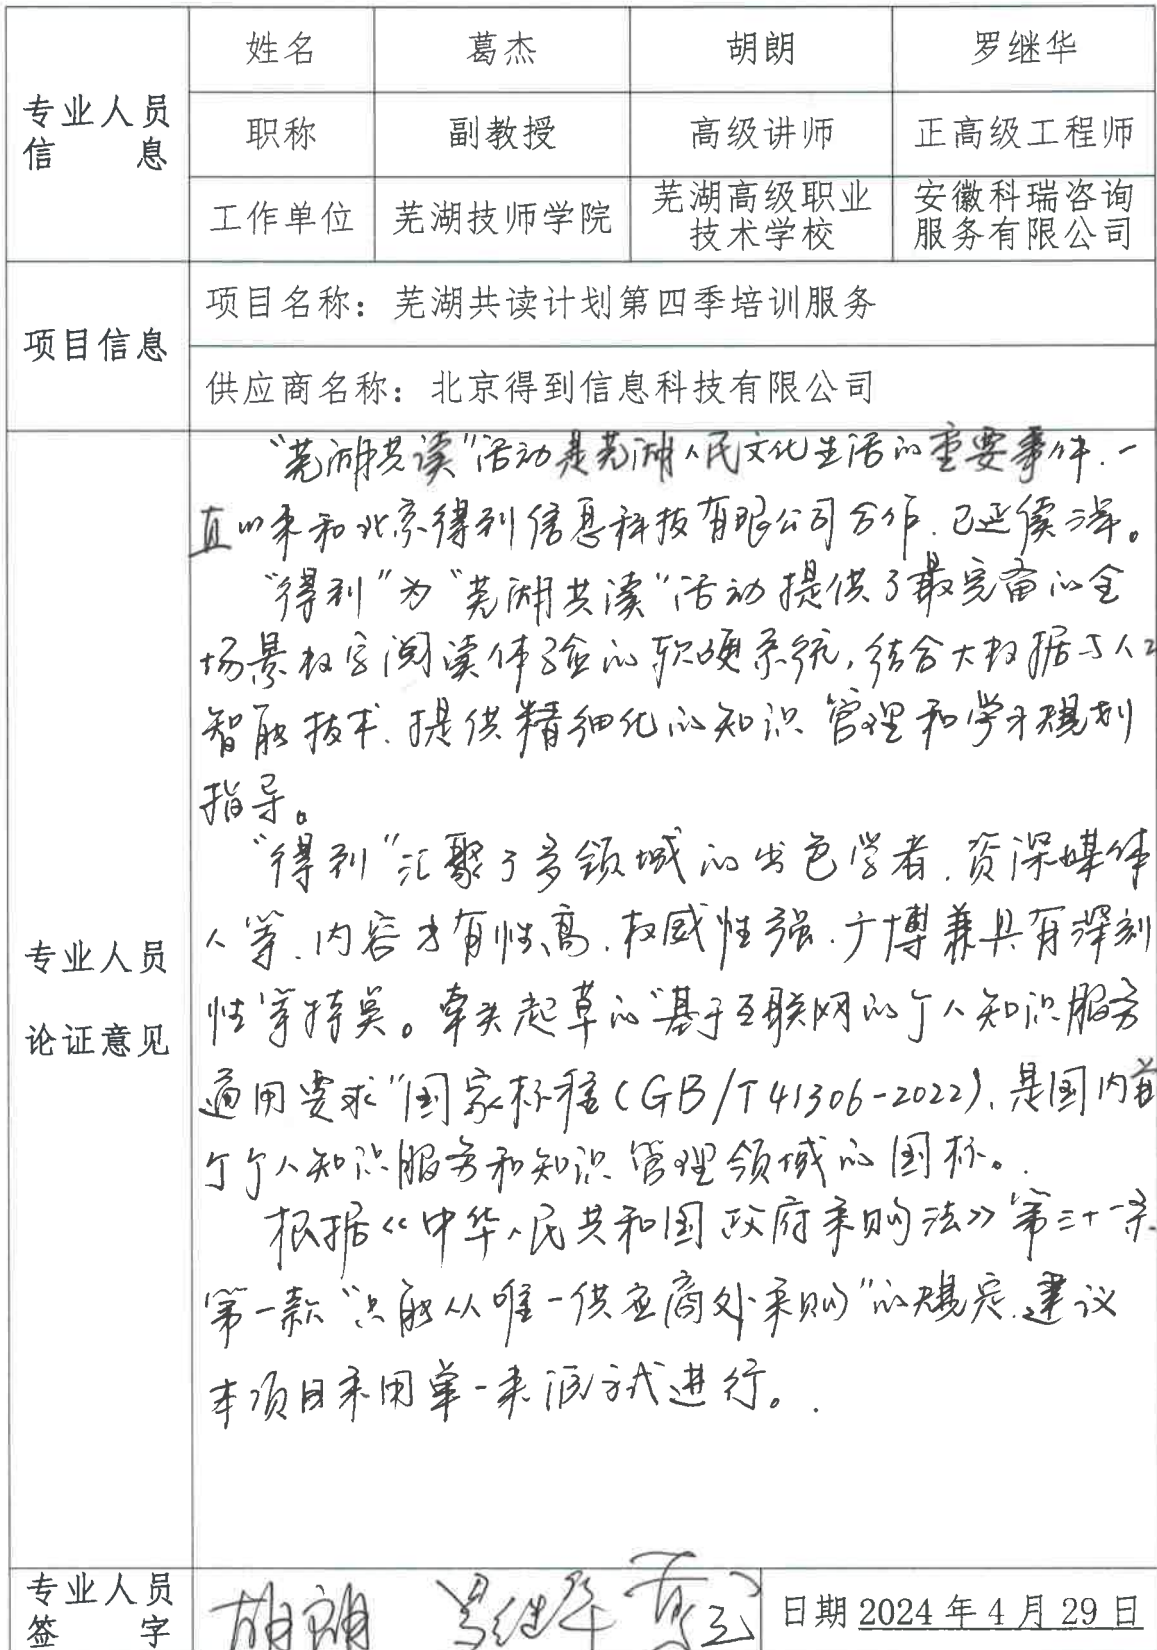 专业人员
信 息
姓名 葛杰 胡朗 罗继华
职称 副教授 高级讲师 正高级工程师
工作单位 芜湖技师学院 芜湖高级职业 安徽科瑞咨询
技术学校 服务有限公司
项目信息
项目名称：芜湖共读计划第四季培训服务
供应商名称：北京得到信息科技有限公司
专业人员
论证意见
“芜湖共读”活动是芜湖人民文化生活的重要事件，一
直以来和北京得到信息科技有限公司合作，已延续三年。
“得到”为“芜湖共读”活动提供了最完备的全
场景数字阅读体验的软硬系统，结合大数据与人工
智能技术，提供精细化的知识管理和学习规划
指导。
“得到”汇聚了多领域的出色学者，资深媒体
人等，内容专有性高，权威性强，广博兼具有深刻
性等特点。牵头起草的“基于互联网的个人知识服务
通用要求”国家标准（GB/T 41306-2022），是国内首
个个人知识服务和知识管理领域的国标。
根据《中华人民共和国政府采购法》第三十一条
第一款“只能从唯一供应商处采购”的规定，建议
本项目采用单一来源方式进行。
专业人员
签 字
胡朗 罗继华 葛杰
日期 2024 年 4 月 29 日